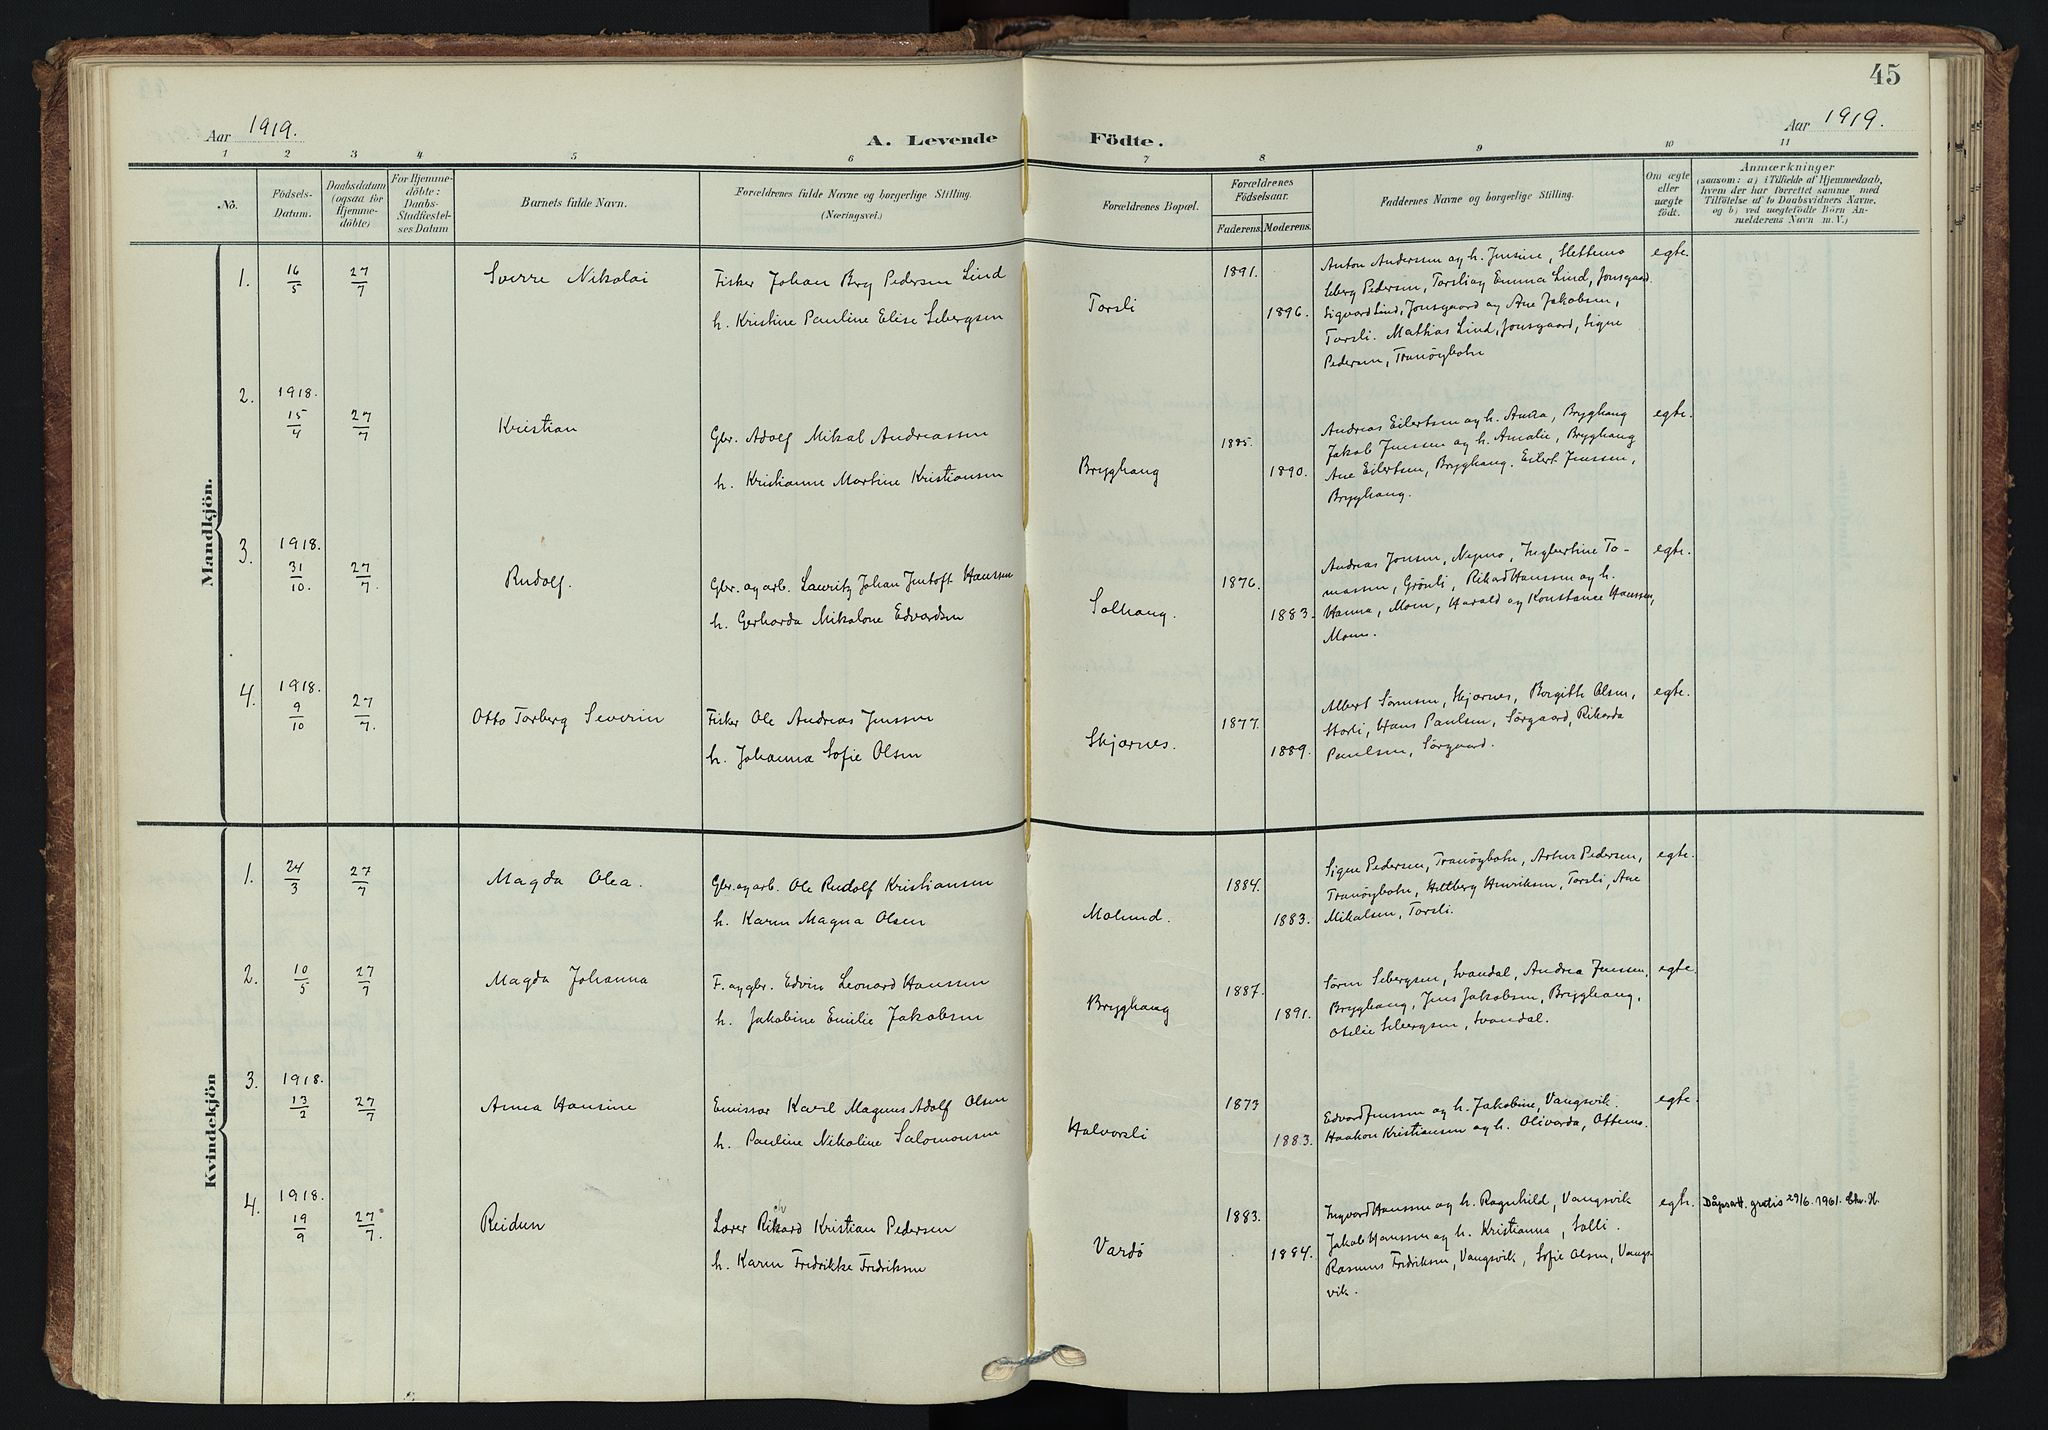 45
Aar 1919.
A. Levende Födte.
Aar 1919.
1 2 3 4 5 6 7 8 9 10 11
No.
Födsels-
Datum.
Daabsdatum
(ogsaa for
Hjemme-
döbte)
For Hjemme-
döbte:
Daabs-
Stadfæstel-
ses Datum
Barnets fulde Navn.
Forældrenes fulde Navne og borgerlige Stilling.
(Næringsvei.)
Forældrenes Bopæl.
Forældrenes
Födselsaar.
Faderens. Moderens.
Faddernes Navne og borgerlige Stilling.
Om ægte
eller
uægte
födt.
Anmærkninger
(saasom: a) i Tilfælde af Hjemmedaab,
hvem der har forrettet samme med
Tilföielse af to Daabsvidners Navne,
og b) ved uægtefödte Börn An-
melderens Navn m. V.)
Mandkjön.
1. 16/5 27/7 Sverre Nikolai
Fisker Johan Berg Pedersen Lind
h. Kristine Pauline Elise Sebergsen
Torsli
1891.
1896.
Anton Andersen og h. Jensine, Slettemo
Seberg Pedersen, Torsli og Emma Lind, Jonsgaard.
Sigvard Lind, Jonsgaard og Ane Jakobsen,
Torsli. Mathias Lind, Jonsgaard, Signe
Pedersen, Tranöybotn
egte.
2. 1918.
15/4 27/7 Kristian
Gbr. Adolf Mikal Andreassen
h. Kristianne Martine Kristiansen
Brygghaug
1885.
1890.
Andreas Eilertsen og h. Anna, Brygghaug
Jakob Jenssen og h. Amalie, Brygghaug
Ane Eilertsen, Brygghaug. Eilert Jenssen,
Brygghaug.
egte.
3. 1918.
31/10. 27/7. Rudolf.
Gbr. og arb. Lauritz Johan Jentoft Hanssen
h. Gerharda Mikalone Edvardsen
Solhaug.
1876.
1883.
Andreas Jonsen, Nymo, Ingbertine To-
massen, Grönli, Rikard Hanssen og h.
Hanna, Moen, Harald og Konstance Hanssen,
Moen.
egte.
4. 1918.
9/10 27/7. Otto Torberg Severin
Fisker Ole Andreas Jenssen
h. Johanna Sofie Olsen
Skjærnes.
1877.
1889.
Albert Sörnsen, Skjærnes, Borgitte Olsen,
Storli, Hans Paulsen, Sörgaard, Rikarda
Paulsen, Sörgaard.
egte.
Kvindekjön
1. 24/3 27/7 Magda Olea.
Gbr. og arb. Ole Rudolf Kristiansen
h. Karen Magna Olsen
Molund.
1884.
1883.
Signe Pedersen, Tranöybotn, Artur Pedersen,
Tranöybotn, Henriksen, Torsli, Ane
Mikalsen, Torsli.
egte.
2. 10/5 27/7 Magda Johanna
F. og gbr. Edvin Leonard Hanssen
h. Jakobine Emilie Jakobsen
Brygghaug
1887.
1891.
Sören Sebergsen, Svandal, Andrea Jenssen,
Brygghaug, Jens Jakobsen, Brygghaug,
Otelie Sebergsen, Svandal.
egte.
3. 1918.
13/2 27/7 Anna Hansine
Emissær Karl Magnus Adolf Olsen
h. Pauline Nikoline Salomonsen
Halvorsli
1873
1883.
Edvard Jenssen og h. Jakobine, Vangsvik.
Haakon Kristiansen og h. Olivarda, Ottemo.
egte.
4. 1918.
19/9 27/7. Reidun
Lærer Rikard Kristian Pedersen
h. Karen Fredrikke Fredriksen
Vardö
1883.
1884.
Ingvard Hanssen og h. Ragnhild, Vangsvik
Jakob Hanssen og h. Kristianna, Solli.
Rasmus Fredriksen, Vangsvik, Sofie Olsen, Vangs-
vik.
egte.
Dåpsatt. gratis 29/6. 1961.